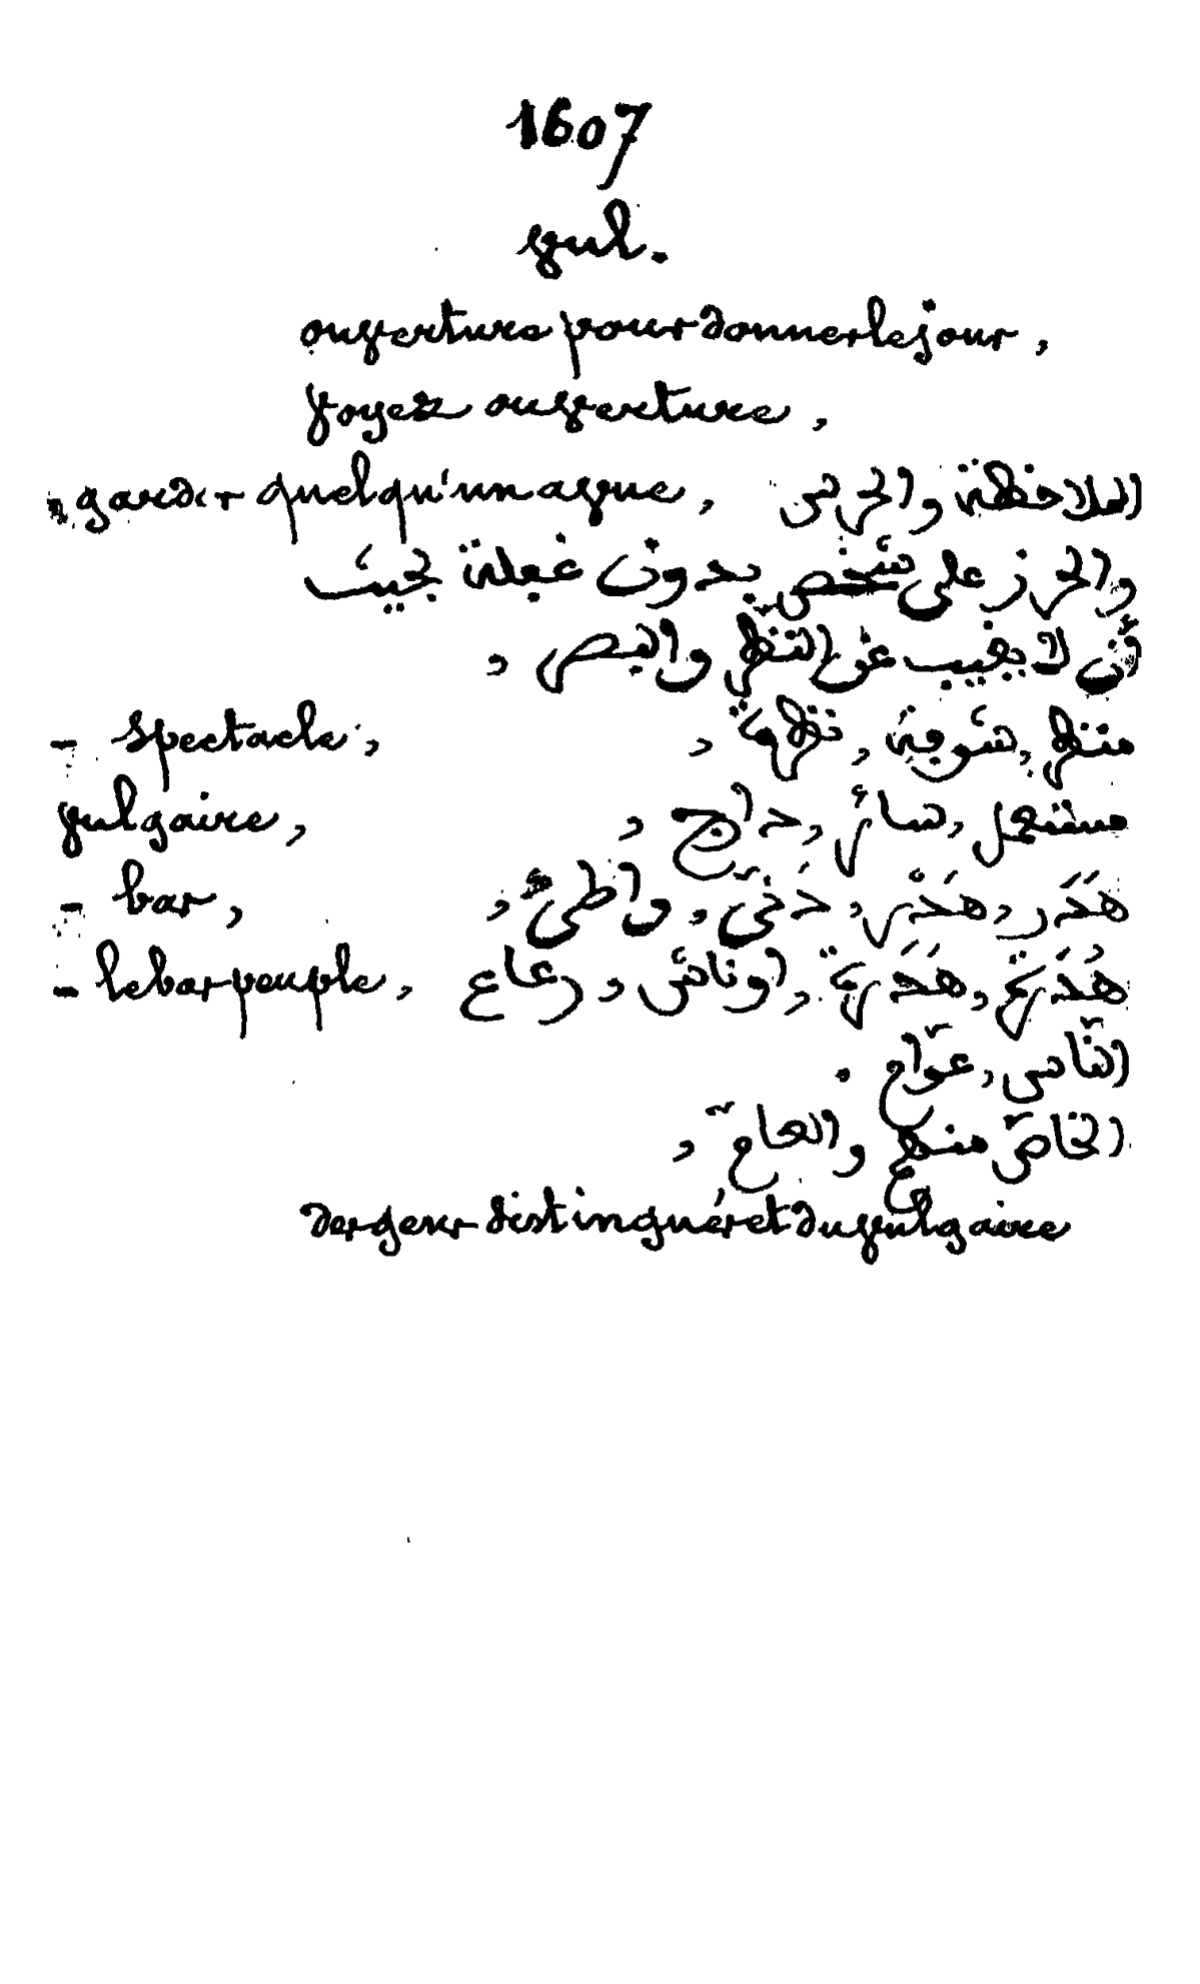 1607
vul.
ouverture pour donner le jour,
voyez ouverture,
- garder quelqu'un a vue, الملاحظة والحرس
والحرز على شخص بدون غفلة بحيث
أن لا يغيب عن النظر والبصر,
- spectacle, منظر, شوفة, نظرة,
vulgaire, مستعمل, سائر, دارج,
- bas, هَدَر, هَدْر, دَنيّ, واطئ,
- le bas peuple, هُدَرَة, هَدَرَة, اوباش, رعاع
الناس, عوّام.
الخاصّ منهم والعامّ,
des gens distingués et du vulgaire